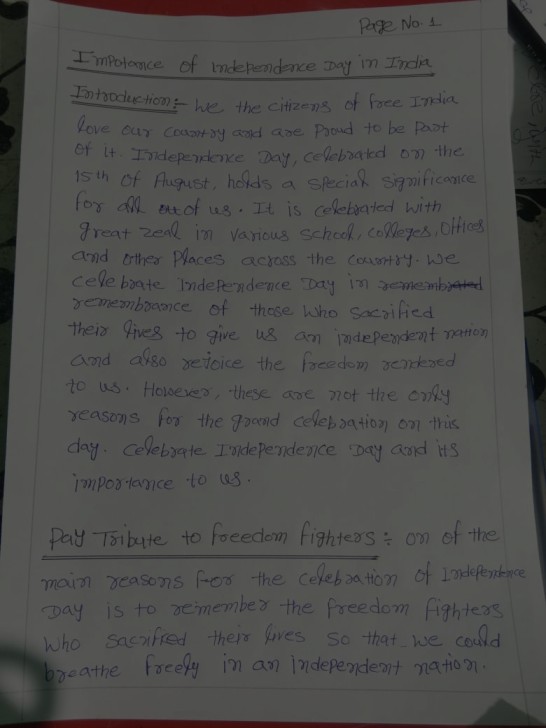 Page No. 1
Impotance of independence Day in India
Introduction:- We the citizens of free India
love our country and are proud to be part
of it. Independence Day, celebrated on the
15th of August, holds a special significance
for all of us. It is celebrated with
great zeal in various school, colleges, offices
and other places across the country. We
celebrate Independence Day in remembrated
remembrance of those who sacrified
their lives to give us an independent nation
and also rejoice the freedom rendered
to us. However, these are not the only
reasons for the grand celebration on this
day. Celebrate Independence Day and its
importance to us.
Pay Tribute to freedom fighters:- on of the
main reasons for the celebration of Independence
Day is to remember the freedom fighters
who sacrified their lives so that we could
breathe freely in an Independent nation.